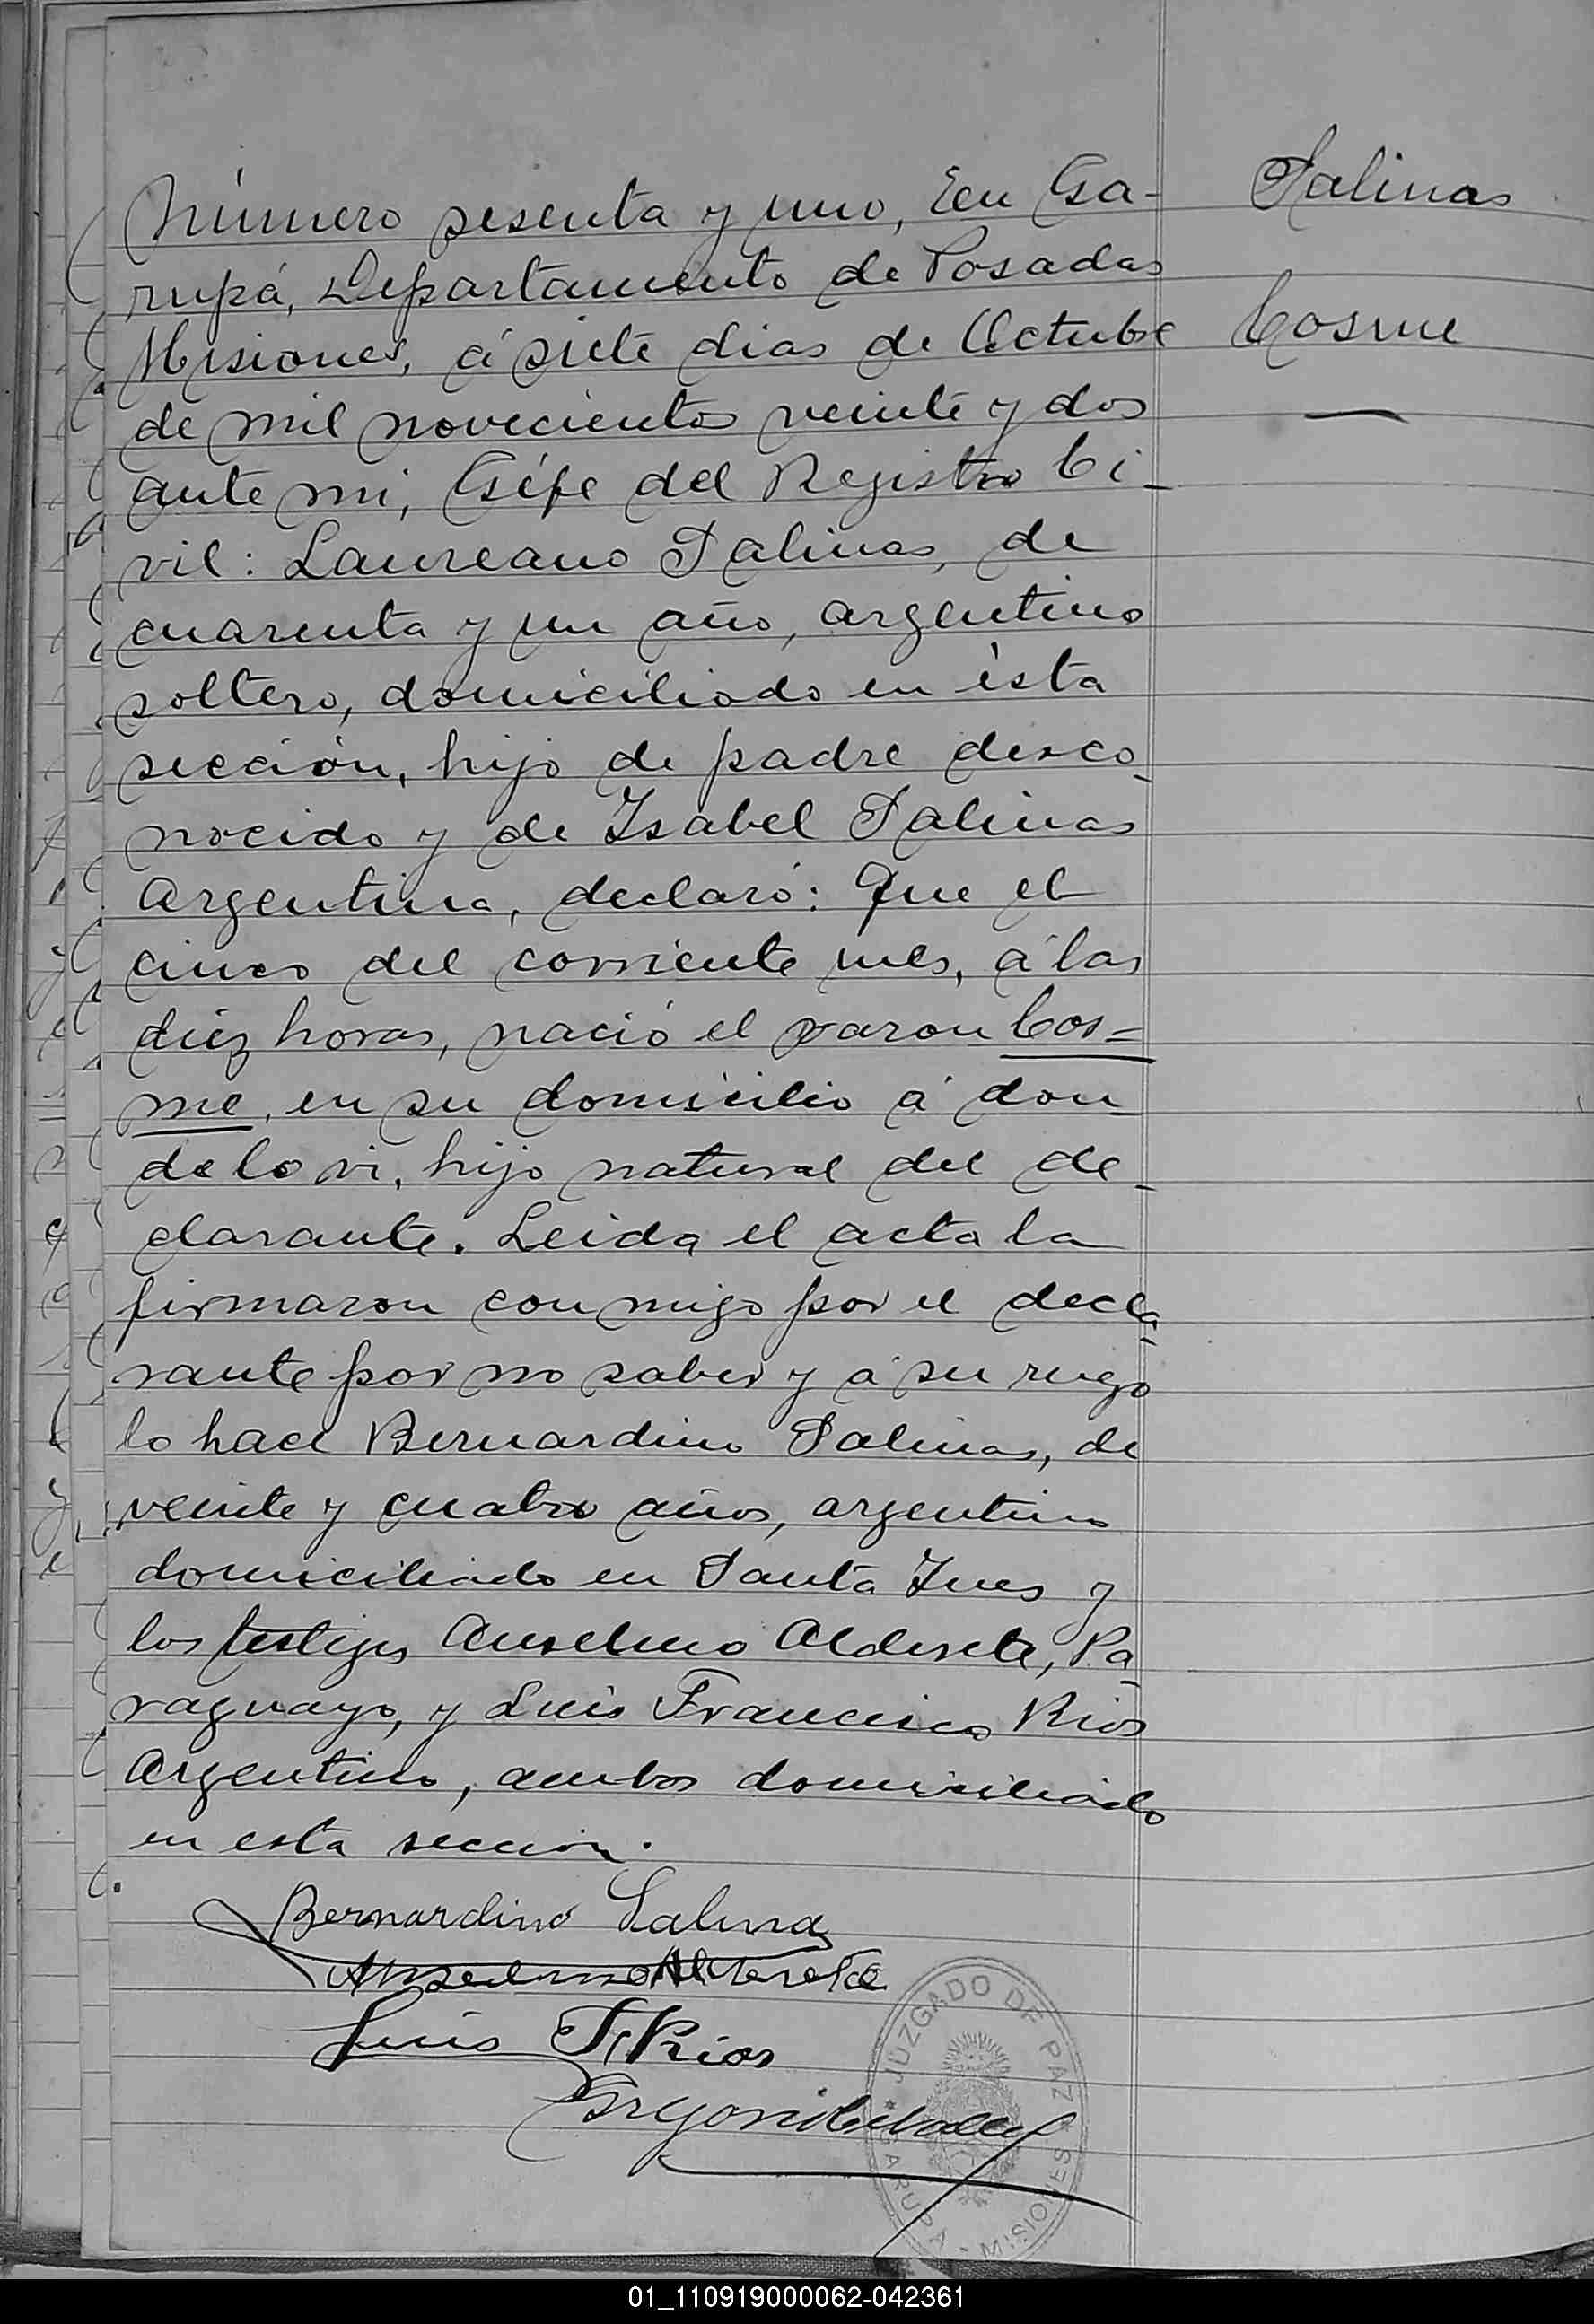 Salinas
Cosme
Número sesenta y uno, En Ga-
rupá, Departamento de Posadas
Misiones, á siete dias de Octubre
de mil novecientos veinte y dos
ante mi, Géfe del Registro Ci-
vil: Laureano Salinas, de
cuarenta y un año, argentino
soltero, domiciliado en ésta
sección, hijo de padre desco-
nocido y de Isabel Salinas
Argentina, declaró: Que el
cinco del corriente mes, á las
diez horas, nació el varon Cos=
me, en su domicilio á don
de lo vi, hijo natural del de-
clarante. Leida el acta la
firmaron con migo por el decla-
rante por no saber y á su ruego
lo hace Bernardino Salinas, de
veinte y cuatro años, argentino
domiciliado en Santa Ines y
los testigos Anselmo Alderete, Pa-
raguayo, y Luis Francisco Rios
Argentino, ambos domiciliado
en esta sección.
Bernardino Salinas
Anselmo Alderete
Luis F. Rios
JUZGADO DE PAZ
GARUPA - MISIONES
01_110919000062-042361